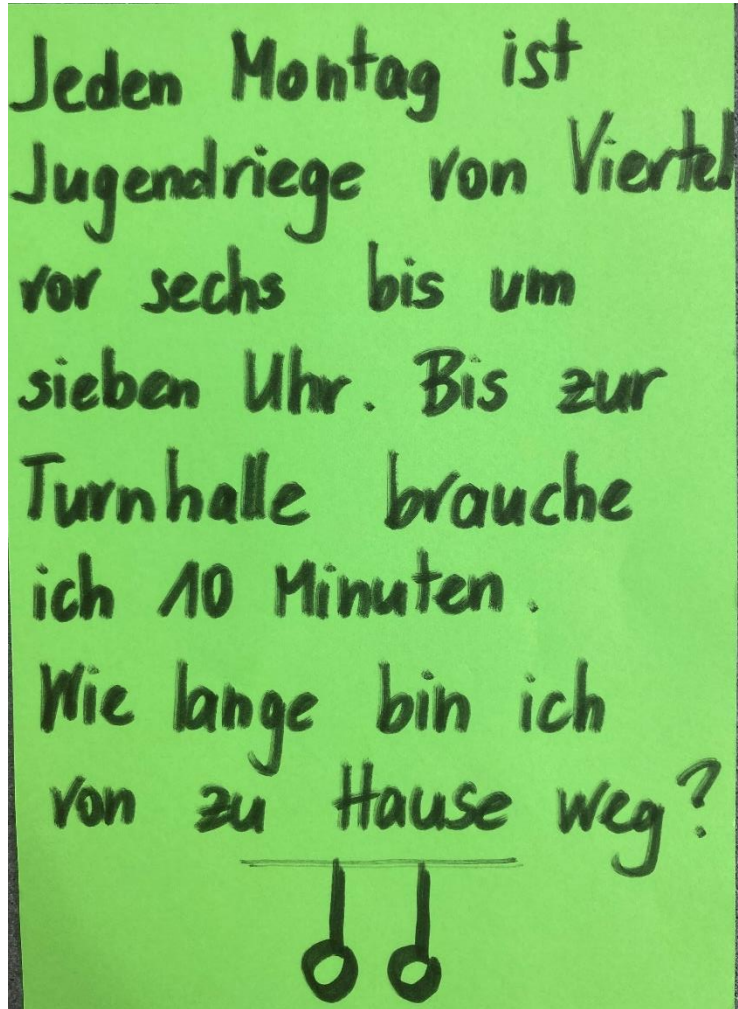 Jeden Montag ist
Jugendriege von Viertel
vor sechs bis um
sieben Uhr. Bis zur
Turnhalle brauche
ich 10 Minuten.
Wie lange bin ich
von zu Hause weg?